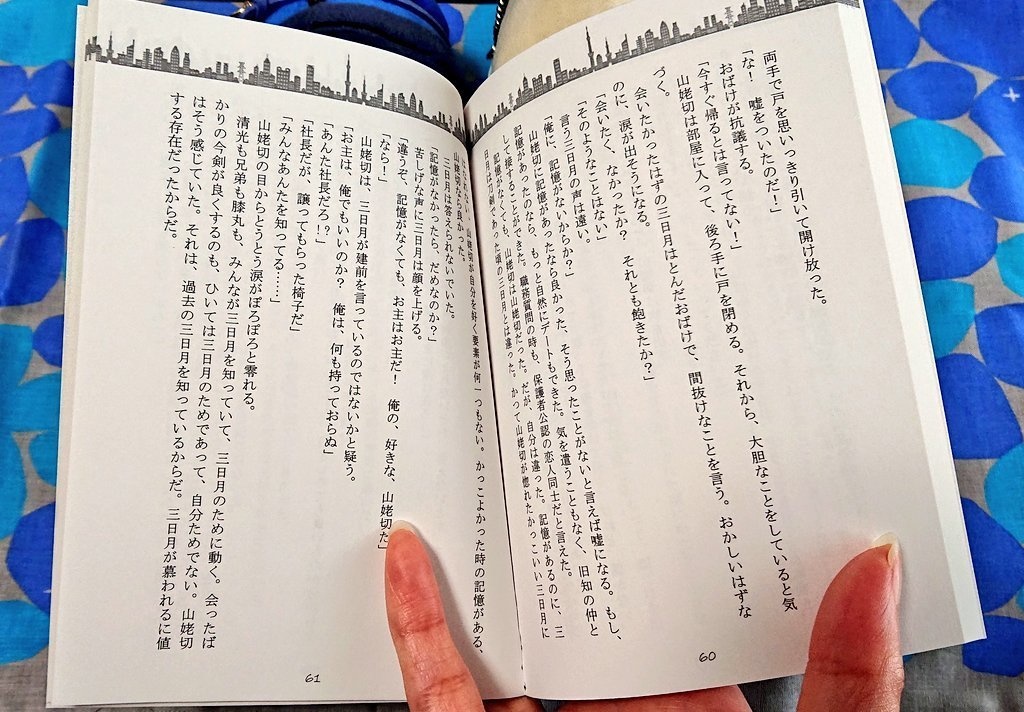 両手で戸を思いっきり引いて開け放った。
「な! 嘘をついたのだ!」
おばけが抗議する。
「今すぐ帰るとは言ってない!」
山姥切は部屋に入って、後ろ手に戸を閉める。それから、大胆なことをしていると気
づく。
会いたかったはずの三日月はとんだおばけで、間抜けなことを言う。おかしいはずな
のに、涙が出そうになる。
「会いたく、なかったか? それとも飽きたか?」
「そのようなことはない」
言う三日月の声は遠い。
「俺に、記憶がないからか?」
山姥切に記憶があったなら良かった、そう思ったことがないと言えば嘘になる。もし、
記憶があったのなら、もっと自然にデートもできた。気を遣うこともなく、旧知の仲と
して接することができた。職務質問の時も、保護者公認の恋人同士だと言えた。
記憶がなくても、山姥切は山姥切だった。だが、自分は違った。記憶があるのに、三
日月は刀剣であった頃の三日月とは違った。かつて山姥切が惚れたかっこいい三日月に
はなれない。山姥切が自分を好く要素が何一つもない。かっこよかった時の記憶がある、
山姥切なら良かった。
三日月は答えられないでいた。
「記憶がなかったら、だめなのか?」
苦しげな声に三日月は顔を上げる。
「違うぞ、記憶がなくても、お主はお主だ! 俺の、好きな、山姥切だ」
「なら!」
山姥切は、三日月が建前を言っているのではないかと疑う。
「お主は、俺でもいいのか? 俺は、何も持っておらぬ」
「あんた社長だろ!?」
「社長だが、譲ってもらった椅子だ」
「みんなあんたを知ってる……」
山姥切の目からとうとう涙がぽろぽろと零れる。
清光も兄弟も膝丸も、みんなが三日月を知っていて、三日月のために動く。会ったば
かりの今剣が良くするのも、ひいては三日月のためであって、自分ためでない。山姥切
はそう感じていた。それは、過去の三日月を知っているからだ。三日月が慕われるに値
する存在だったからだ。
60
61